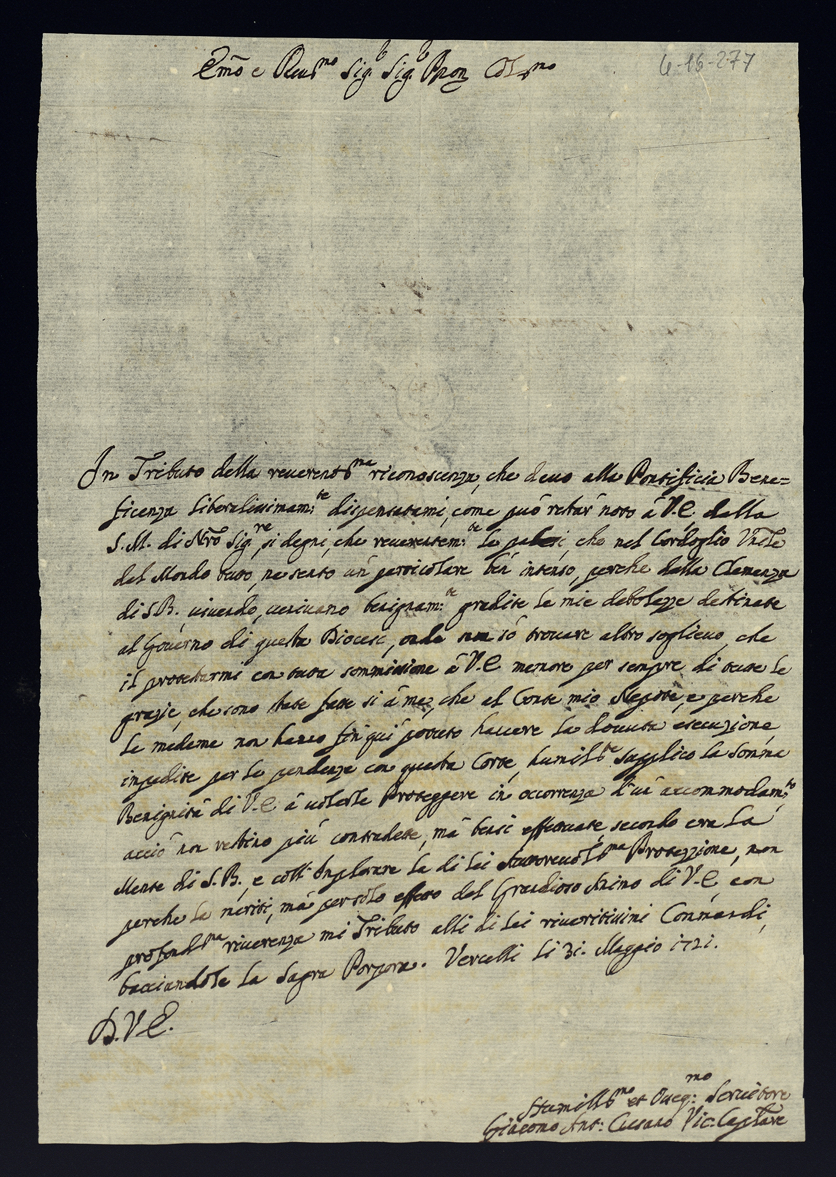 Em̃o e Reu.mo Sig.r Sig.r Pron Col.mo
6-16-277
In Tributo della reuerent.ma riconoscenza, che deuo alla Pontificia Bene=
ficenza liberalissimam.te dispensatami, come può restar noto à V.E. dalla
S.M. di Nr̃o Sig.re, si degni, che reuerentem.te Le palesi, che nel Cordoglio Vn̄le
del Mondo tutto, ne sento un particolare ben intenso, perche dalla Clemenza
di S.B., uiuendo, ueniuano benignam.te gradite le mie debolezze destinate
al Gouerno di questa Diocesi, onde non sò trouare altro soglieuo, che
il protestarmi con tutta sommissione à V.E. memore per sempre di tutte le
grazie, che sono state fatte si à me, che al Conte mio Nepote, e perche
le medeme non hanno fin qui potuto hauere la douuta esecuzione,
impedite per le pendenze con questa Corte, humil.te supplico la somma
Benignità di V.E. à uolerle Proteggere in occorrenza d'un accommodam.to
acciò non restino più contradette, mà bensì effettuate secondo era la
Mente di S.B., e coll' Implorare la di lei fauoreuol.ma Protezzione, non
perche la meriti, mà per solo effetto del Grandioso Animo di V.E., con
profond.ma riuerenza mi Tributo alli di lei riueritissimi Commandi,
bacciandole la Sagra Porpora. Vercelli li 31. Maggio 1721.
D.V.E.
Humill.mo et Oueq.mo Seruitore
Giacomo Ant: Cusano Vic: Caplãre